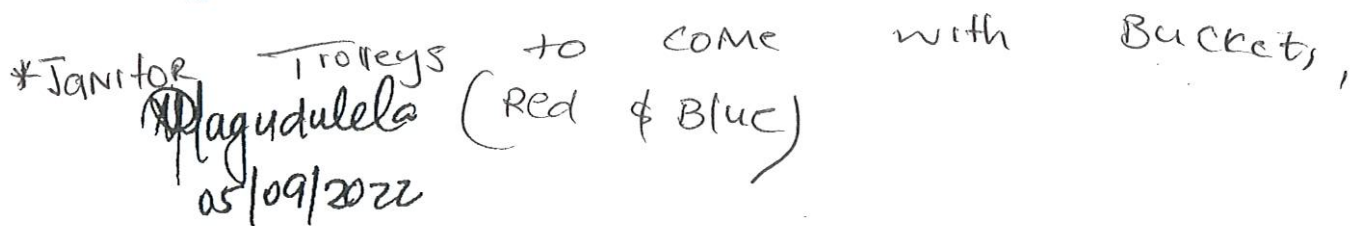 *Janitor Trolleys to come with Buckets,
(Red & Blue)
05/09/2022